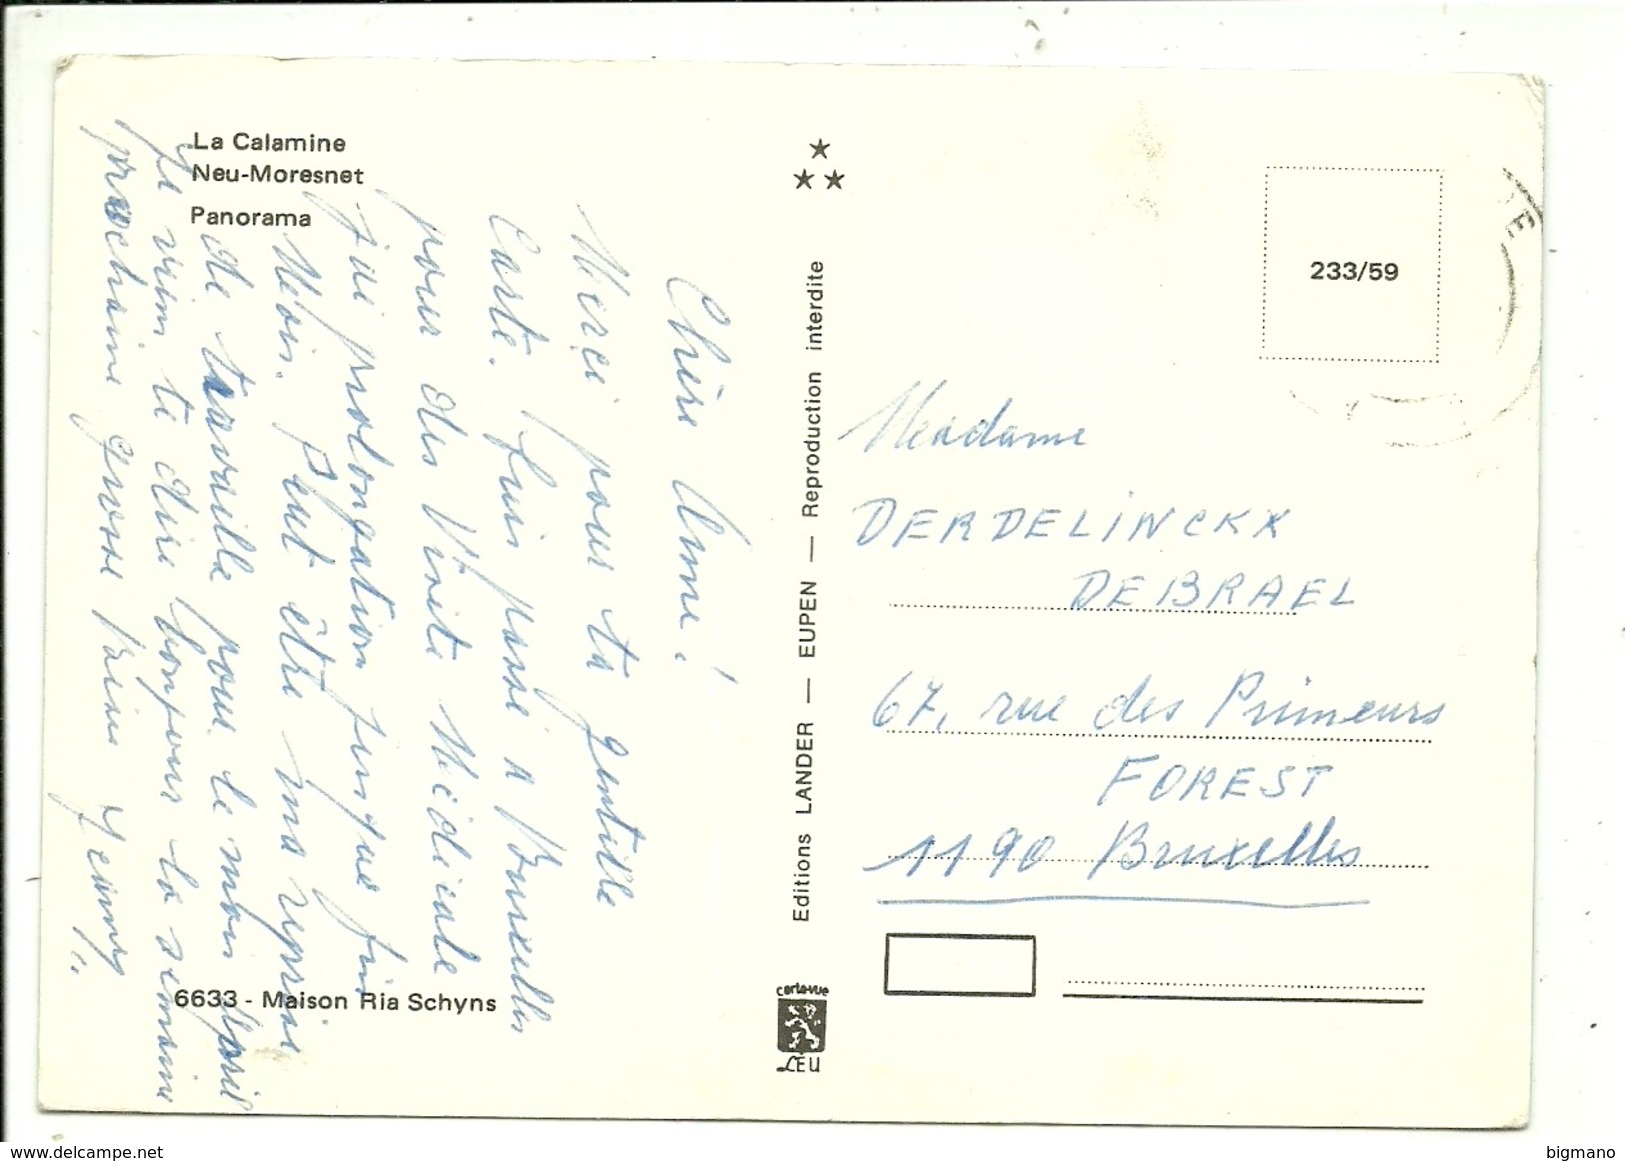 La Calamine
Neu-Moresnet
Panorama
Chère Anne!
Merci pour ta gentille
Carte. Suis passé a Bruxelles
pour des Visite Médicale
j'ai prolongation jusque fin
Mois. Peut être ma reprise
de travaille pour le mois d'Avril
Je vien te dire bonjour la semaine
prochaine grosse bises Jenny
6633 - Maison Ria Schyns
Editions LANDER — EUPEN — Reproduction interdite
carte-vue
LEU
233/59
E
Madame
DERDELINCKX
DEBRAEL
67, rue des Primeurs
FOREST
1190 Bruxelles
delcampe.net
bigmano